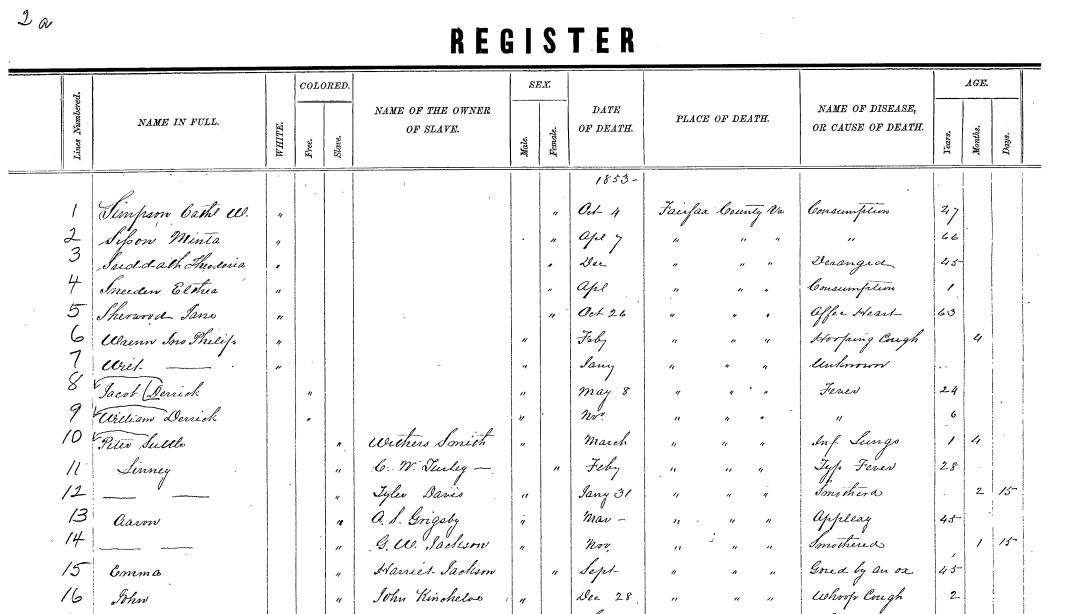 2 a
REGISTER
Lines Numbered. NAME IN FULL. WHITE. COLORED. Free. Slave. NAME OF THE OWNER OF SLAVE. SEX. Male. Female. DATE OF DEATH. PLACE OF DEATH. NAME OF DISEASE, OR CAUSE OF DEATH. AGE. Years. Months. Days.
1853-
1 Simpson Cathl W. " " Oct 4 Fairfax County Va Consumption 27
2 Sisson Minta " " Apl 7 " " " " 66
3 Suddath Theodoria " " Dec " " " Deranged 45
4 Sneeden " " Apl " " " Consumption 1
5 Sherwood Jane " " Oct 26 " " " Affec Heart 63
6 Wrenn Jno Philip " " Feby " " " Hooping Cough 4
7 Writ — " " Jany " " " Unknown
8 Jacob Derrick " " May 8 " " " Fever 24
9 William Derrick " " Nov " " " " 6
10 Peter Suttle " Withers Smith " March " " " Inf Lungs 1 4
11 Linney " C. W. Turley — " Feby " " " Typ Fever 28
12 — — " Tyler Davis " Jany 31 " " " Smotherd 2 15
13 Aaron " A. S. Grigsby " Mar — " " " Appleay 45
14 — — " G. W. Jackson " Nov " " " Smothered 1 15
15 Emma " Harriet Jackson " Sept " " " Gored by an ox 45
16 John " John Kincheloe " Dec 28 " " " Whoop Cough 2